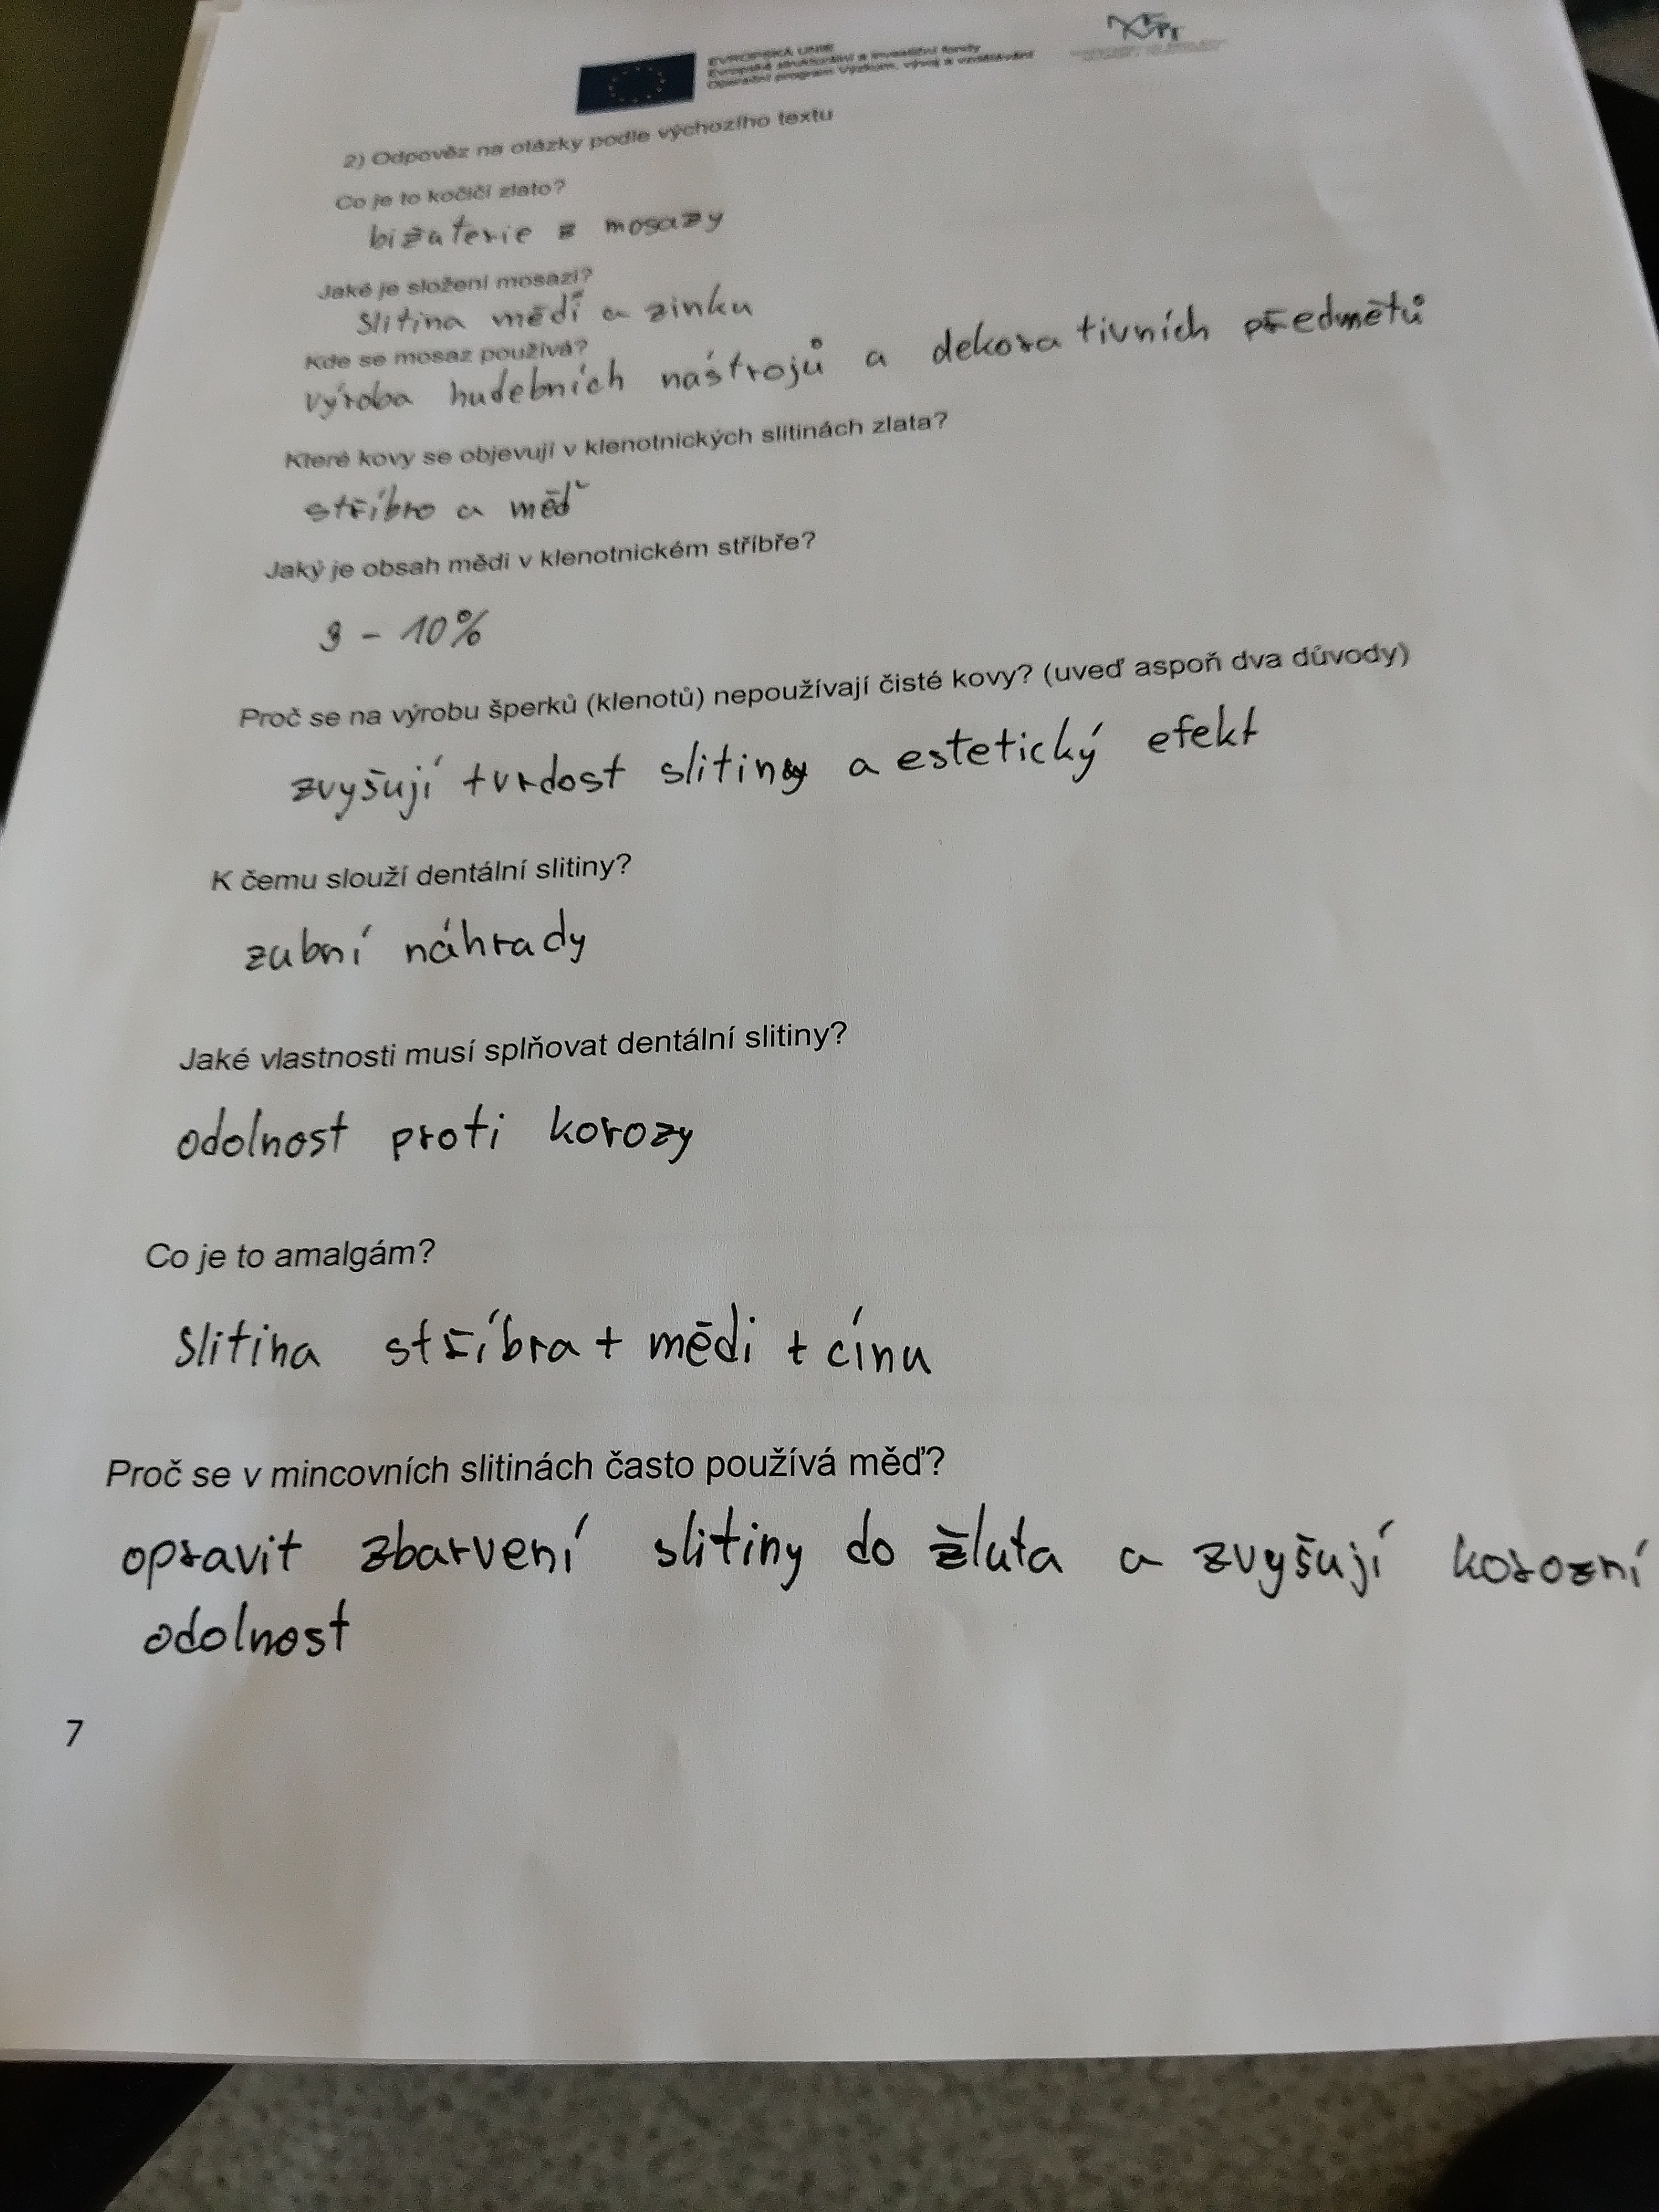 EVROPSKÁ UNIE
Evropské strukturální a investiční fondy
Operační program Výzkum, vývoj a vzdělávání
2) Odpověz na otázky podle výchozího textu
Co je to kočičí zlato?
bižuterie z mosazy
Jaké je složení mosazi?
Slitina mědí a zinku
Kde se mosaz používá?
výroba hudebních nástrojů a dekorativních předmětů
Které kovy se objevují v klenotnických slitinách zlata?
stříbro a měď
Jaký je obsah mědi v klenotnickém stříbře?
- 10%
Proč se na výrobu šperků (klenotů) nepoužívají čisté kovy? (uveď aspoň dva důvody)
zvyšují tvrdost slitiny a estetický efekt
K čemu slouží dentální slitiny?
zubní náhrady
Jaké vlastnosti musí splňovat dentální slitiny?
odolnost proti korozy
Co je to amalgám?
Slitina stříbra + mědi + cínu
Proč se v mincovních slitinách často používá měď?
opravit zbarvení slitiny do žluta a zvyšují korozní
odolnost
7